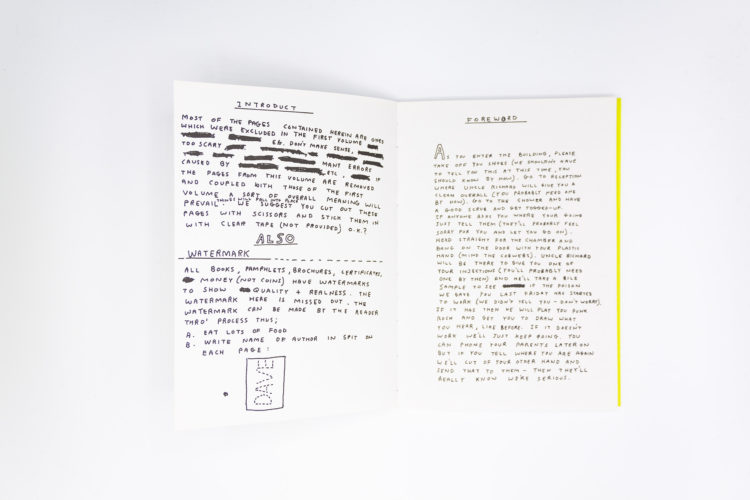 INTRODUCT
MOST OF THE PAGES CONTAINED HEREIN ARE ONES
WHICH WERE EXCLUDED IN THE FIRST VOLUME
TOO SCARY E.G. DON'T MAKE SENSE,
MANY ERRORS
CAUSED BY ETC. IF
THE PAGES FROM THIS VOLUME ARE REMOVED
AND COUPLED WITH THOSE OF THE FIRST
VOLUME A SORT OF OVERALL MEANING WILL
THINGS WILL FALL INTO PLACE
PREVAIL. WE SUGGEST YOU CUT OUT THESE
PAGES WITH SCISSORS AND STICK THEM IN
WITH CLEAR TAPE (NOT PROVIDED) O.K.?
ALSO
WATERMARK
ALL BOOKS, PAMPHLETS, BROCHURES, CERTIFICATES,
MONEY (NOT COINS) HAVE WATERMARKS
TO SHOW QUALITY + REALNESS. THE
WATERMARK HERE IS MISSED OUT. THE
WATERMARK CAN BE MADE BY THE READER
THRO' PROCESS THUS;
A. EAT LOTS OF FOOD
B. WRITE NAME OF AUTHOR IN SPIT ON
EACH PAGE:
DAVE
FOREWORD
AS YOU ENTER THE BUILDING, PLEASE
TAKE OFF YOU SHOES (WE SHOULDN'T HAVE
TO TELL YOU THIS AT THIS TIME, YOU
SHOULD KNOW BY NOW). GO TO RECEPTION
WHERE UNCLE RICHARD WILL GIVE YOU A
CLEAN OVERALL (YOU PROBABLY NEED ONE
BY NOW). GO TO THE SHOWER AND HAVE
A GOOD SCRUB AND GET TOGGED-UP.
IF ANYONE ASKS YOU WHERE YOUR GOING
JUST TELL THEM (THEY'LL PROBABLY FEEL
SORRY FOR YOU AND LET YOU GO ON).
HEAD STRAIGHT FOR THE CHAMBER AND
BANG ON THE DOOR WITH YOUR PLASTIC
HAND (MIND THE COBWEBS). UNCLE RICHARD
WILL BE THERE TO GIVE YOU ONE OF
YOUR INJECTIONS (YOU'LL PROBABLY NEED
ONE BY THEN) AND HE'LL TAKE A BILE
SAMPLE TO SEE IF THE POISON
WE GAVE YOU LAST FRIDAY HAS STARTED
TO WORK (WE DIDN'T TELL YOU – DON'T WORRY).
IF IT HAS THEN HE WILL PLAY YOU PUNK
ROCK AND GET YOU TO DRAW WHAT
YOU HEAR, LIKE BEFORE. IF IT DOESN'T
WORK WE'LL JUST KEEP GOING. YOU
CAN PHONE YOUR PARENTS LATER ON
BUT IF YOU TELL WHERE YOU ARE AGAIN
WE'LL CUT OF YOUR OTHER HAND AND
SEND THAT TO THEM – THEN THEY'LL
REALLY KNOW WE'RE SERIOUS.